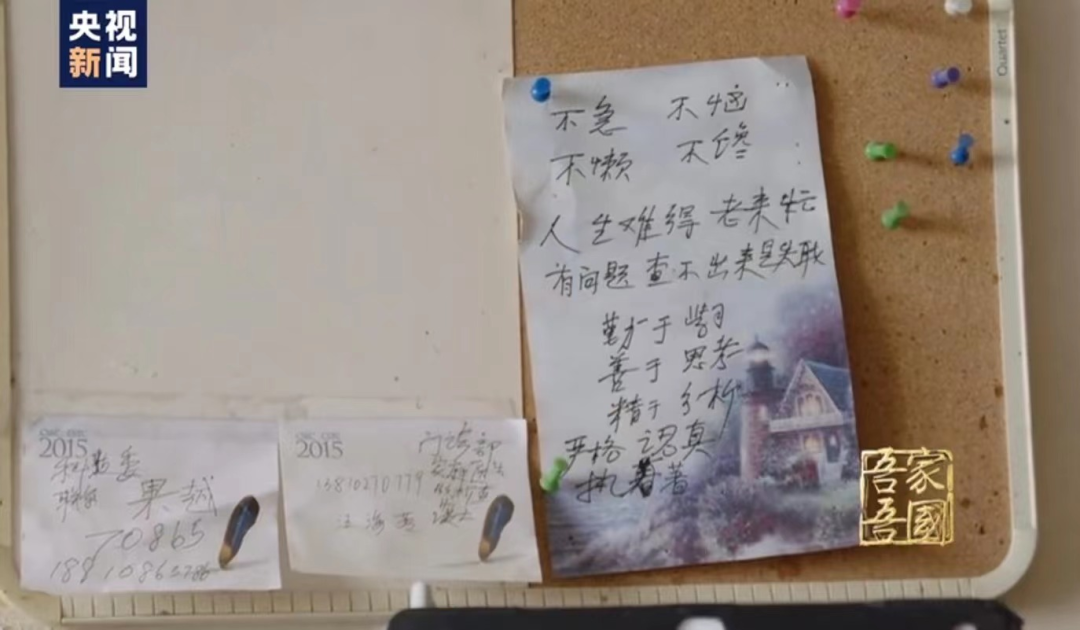 央视
新闻
Quartet
不急 不恼
不懒 不馋
人生难得老来忙
有问题查不出来是失职
勤于学习
善于思考
精于分析
严格 认真
执着
2015
果越
70865
2015
门诊部
13810270779
吾家
吾國